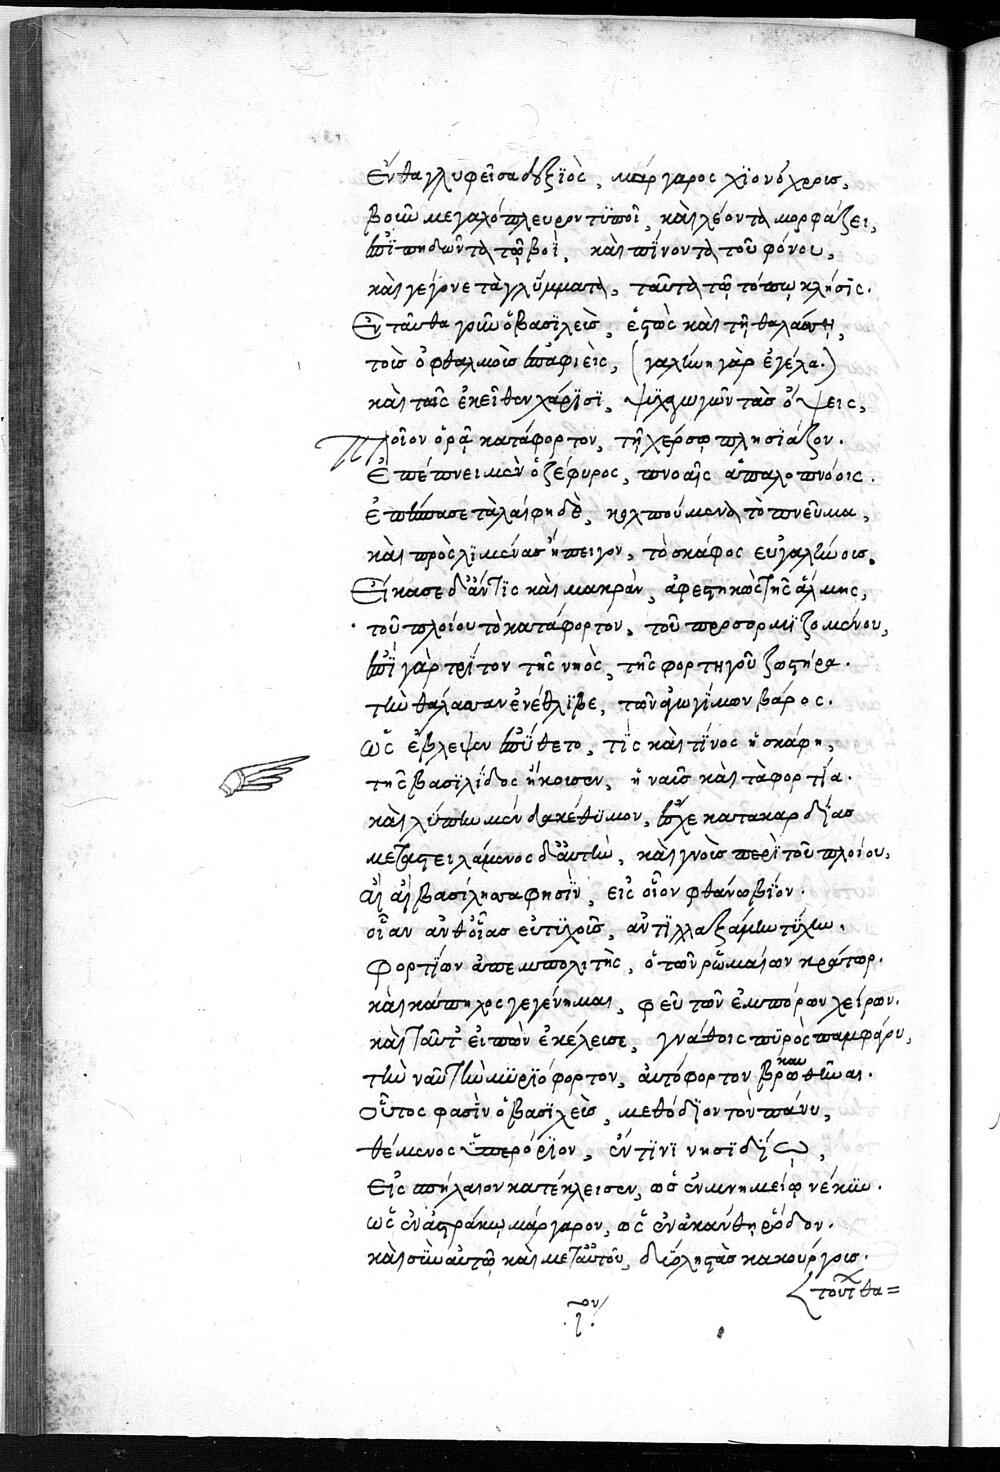 Ἐνταγλυφεῖσα δεξιὸς, μάργαρος χϊονόχρις,
βοῦν μεγαλόπλευρον τυποῖ, καὶ λέοντα μορφάζει,
ἐπϊπηδῶντα τῷ βοῒ, καὶ πίνοντα τοῦ φόνου,
καὶ γέγονε τὰ γλύμματα, ταῦτα τῷ τόπῳ κλήσις.
Ἐνταῦθα γοῦν ὁ βασϊλεὺς, ἑστὼς καὶ τῇ θαλάσσῃ,
τοῖς ὀφθαλμοῖς ἐπαφιεὶς, (γαλήνη γὰρ ἐγέλα.)
καὶ ταῖς ἐκεῖθεν χάρϊσϊ, ψϋχαγωγῶν τὰς ὄψεις,
Πλοῖον ὁρᾷ κατάφορτον, τῇ χέρσῳ πλησϊάζον.
Ἐπέπνει μὲν ὁ ζέφυρος, πνοαῖς ἁπαλοπνόοις.
ἐπέπασε τὰ λαίφη δὲ, κολπούμενα τὸ πνεῦμα,
καὶ πρὸς λϊμένας ἤπειγον, τὸ σκάφος εὐγαλήνοις.
Εἴκασε δ' ἄν τϊς καὶ μακρὰν, ἀφεστηκὼς τῆς ἅλμης,
τοῦ πλοίου τὸ κατάφορτον, τοῦ προσορμϊζομένου,
ἐπεὶ γὰρ τρίτον τῆς νηὸς, τῆς φορτηγοῦ ζωστῆρα.
τὴν θάλασσαν ἐνέθλϊβε, τῶν ἀγωγίμων βάρος.
ὡς ἔβλεψεν ἐπύθετο, τίς καὶ τίνος ἡ σκάφη,
τῆς βασϊλίδος ἤκουσεν, ἡ ναῦς καὶ τὰ φορτία.
καὶ λύπην μὲν δακέθϋμον, ἔσχε κατακαρδίας
μεταστειλάμενος δ' αὐτὴν, καὶ γνοὺς περὶ τοῦ πλοίου,
αἲ αἲ βασίλησσα φησὶν, εἰς οἷον φθάνω βίον.
οἵαν ἀνθ' οἵας εὐτυχοῦς, ἀντϊλλαξάμην τύχην.
Φορτίων ἀπεμπολητὴς, ὁ τῶν ῥωμαίων κράτωρ.
καὶ κάπηλος γεγένημαι, φεῦ τῶν ἐμπόρων χείρων.
καὶ ταῦτ' εἰπὼν ἐκέλευσε, γνάθοις πϋρὸς παμφάγου,
τὴν ναῦν τὴν μϋρϊόφορτον, αὐτόφορτον βρωθῆναι.
Οὗτος φασὶν ὁ βασϊλεὺς, μεθόδϊον τὸν πάνυ,
θέμενος ὑπερόρϊον, ἔν τϊνϊ νησϊδίῳ,
εἰς σπήλαιον κατέκλεισεν, ὡς ἐν μνημείῳ νέκϋν.
ὡς ἐν ὀστράκῳ μάργαρον, ὡς ἐν ἀκάνθῃ ῥόδον.
καὶ σὺν αὐτῷ καὶ μετ' αὐτοῦ, δύο λῃστὰς κακούργους.
τοῦτ θα=